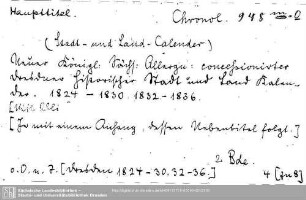 Haupttitel.
Chronol. 948
(Stadt- und Land-Calender)
Neuer Königl. Sächs. Allergn. concessionirter
Dresdner historischer Stadt und Land Kalen-
der. 1824 - 1830. 1832 - 1836.
[Mit
[Je mit einem Anhang, dessen Nebentitel folgt.]
2 Bde.
o. O. u. J. [Dresden 1824-30. 32-36.] 4 [in 8]